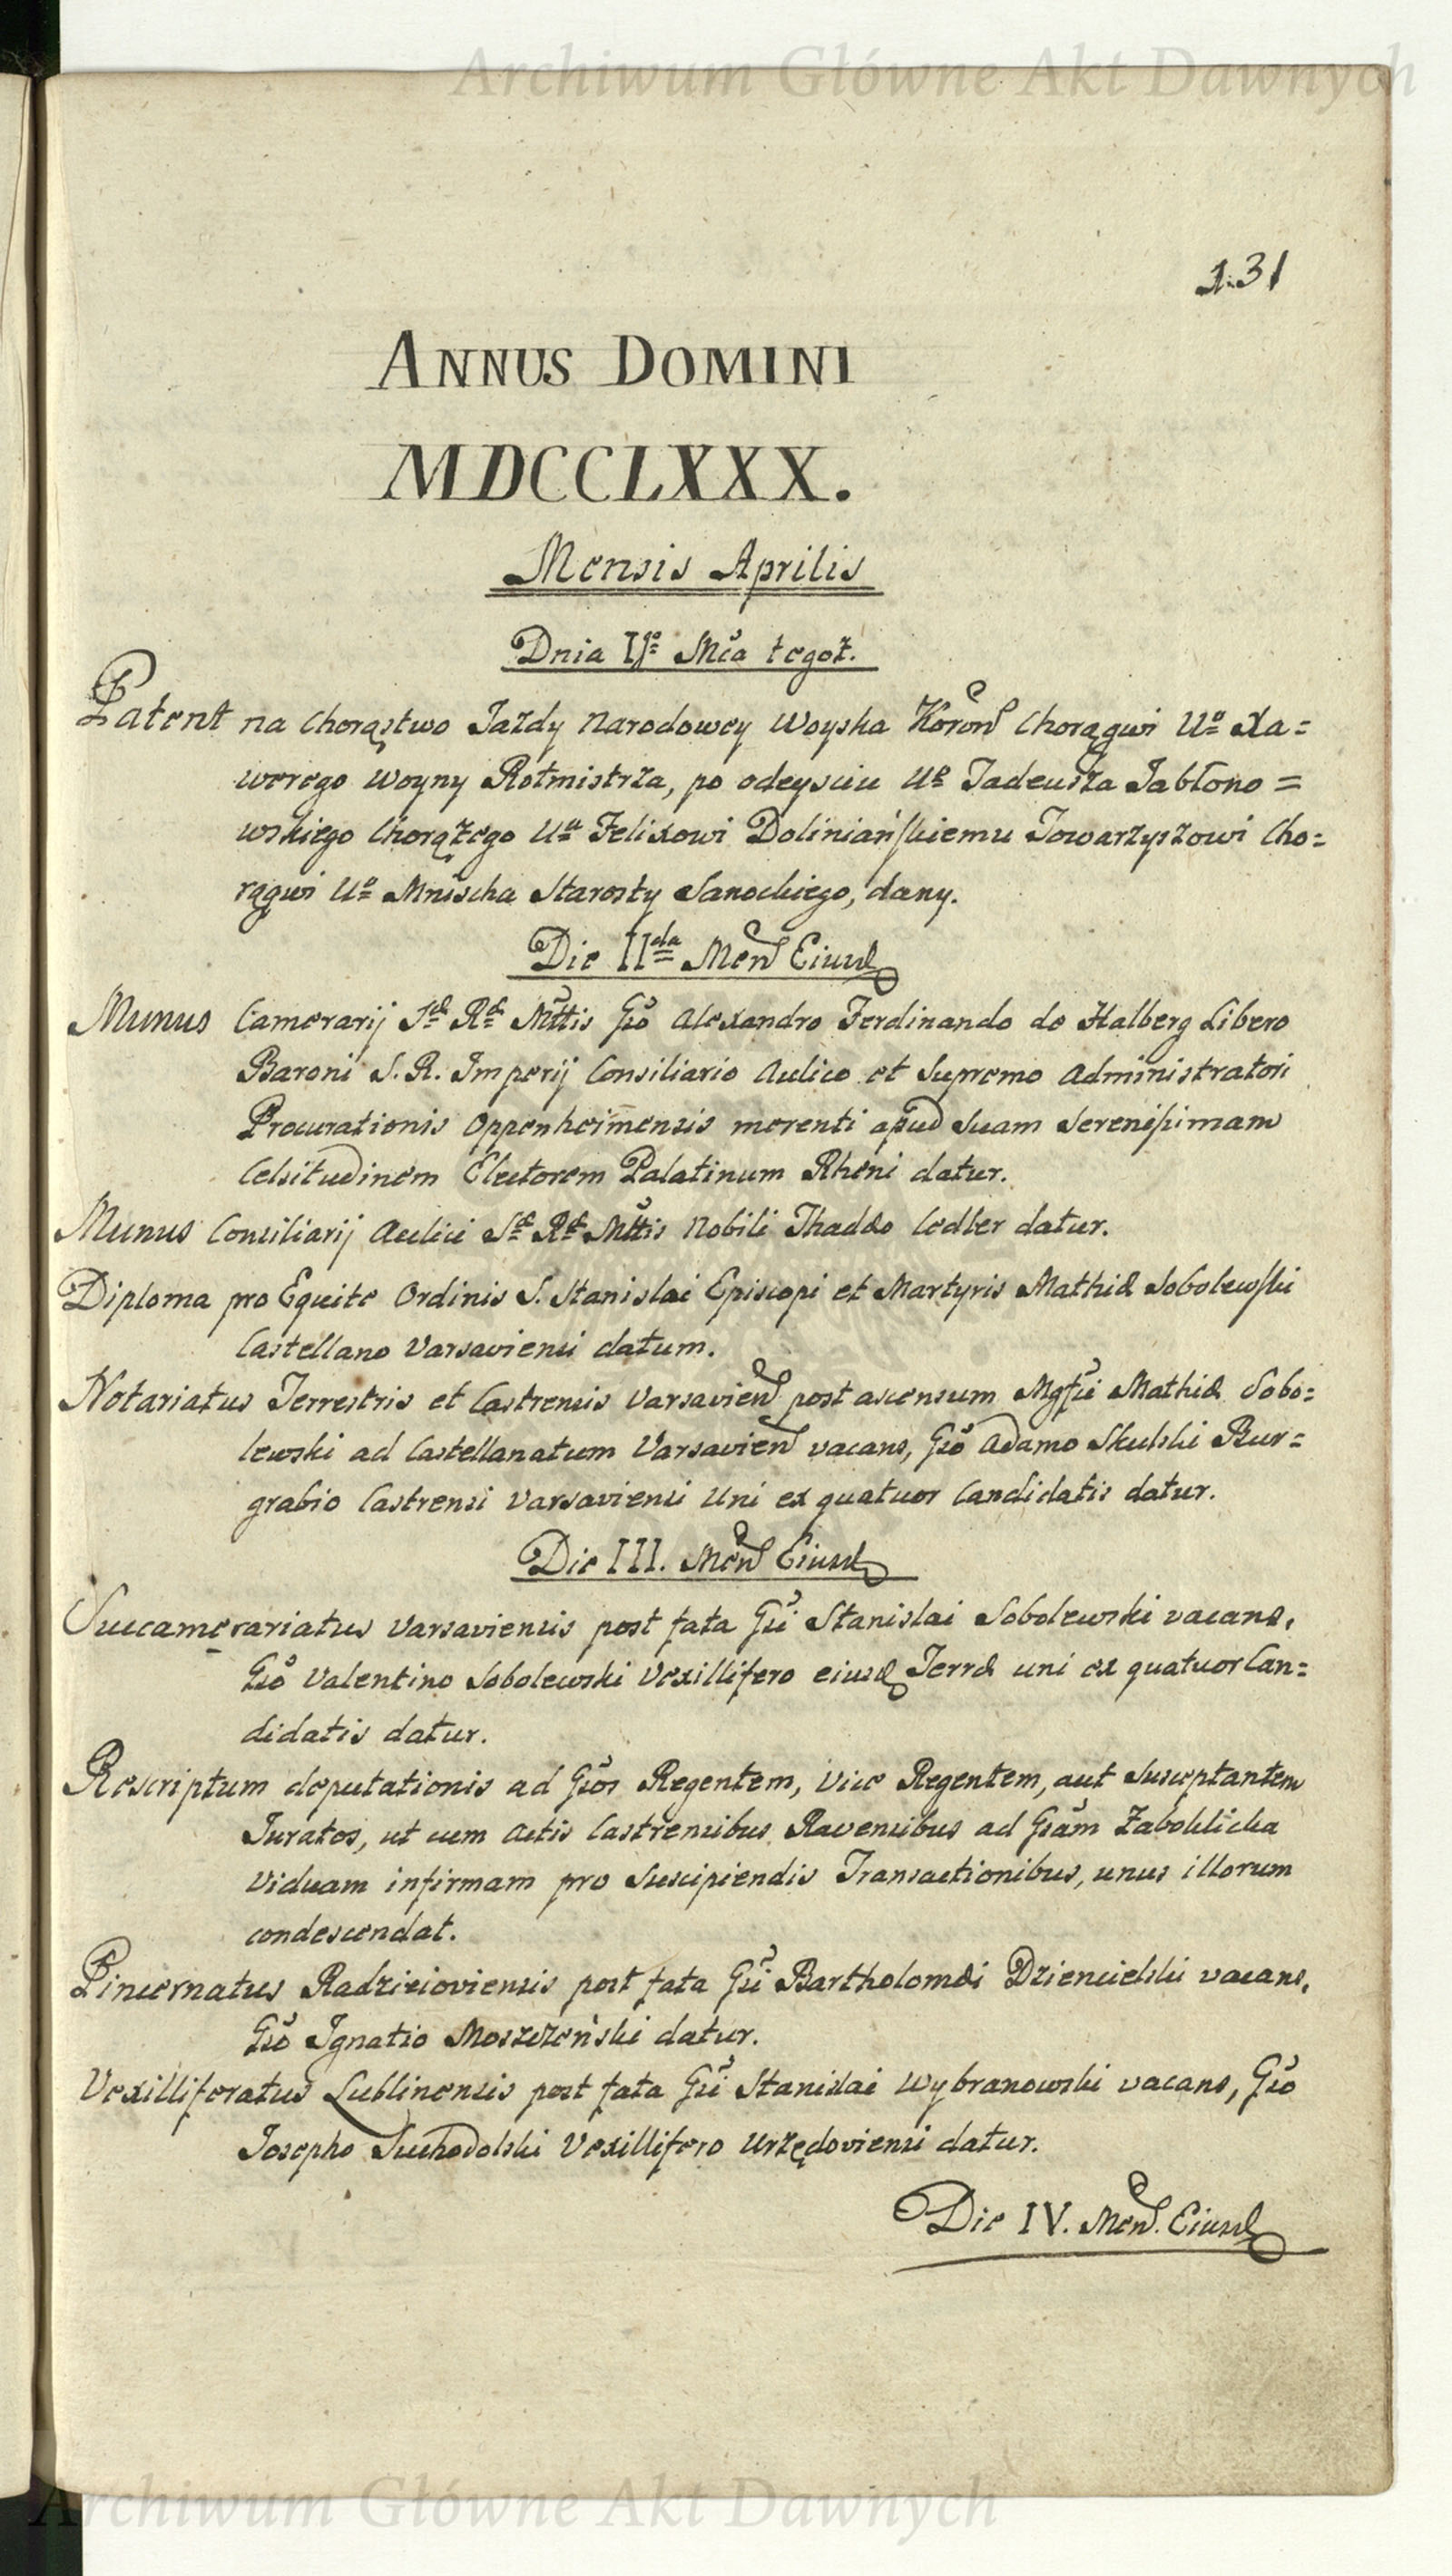 Archiwum Główne Akt Dawnych
131
ANNUS DOMINI
MDCCLXXX.
Mensis Aprilis
Dnia Igo Mca tegoż.
Patent na Chorąstwo Jazdy Narodowey Woyska Koron Chorągwi Uo Xa=
werego Woyny Rotmistrza, po odeysciu Uo Tadeusza Jabłono=
wskiego Chorążego Uu Felixowi Doliniańskiemu Towarzyszowi Cho=
rągwi Uo Mnischa Starosty Sanockiego, dany.
Die IIda Men Eiusd
Munus Camerarij Sæ Ræ Mttis Gso Alexandro Ferdinando de Halberg Libero
Baroni S. R. Imperij Consiliario Aulico et Supremo Administratori
Procurationis Oppenheimensis merenti apud Suam Serenissimam
Celsitudinem Electorem Palatinum Rheni datur.
Munus Consiliarij Aulici Sæ Ræ Mttis Nobili Thaddæo Cedler datur.
Diploma pro Equite Ordinis S. Stanislai Episcopi et Martyris Mathiæ Sobolewski
Castellano Varsaviensi datum.
Notariatus Terrestris et Castrensis Varsavien post ascensum Mgfci Mathiæ Sobo=
lewski ad Castellanatum Varsavien vacans, Gso Adamo Skulski Bur=
grabio Castrensi Varsaviensi Uni ex quatuor Candidatis datur.
Die III. Men Eiusd
Succamerariatus Varsaviensis post fata Gsi Stanislai Sobolewski vacans,
Gso Valentino Sobolewski Vexillifero eiusd Terræ uni ex quatuor Can=
didatis datur.
Rescriptum deputationis ad Gsos Regentem, Vice Regentem, aut Susceptantem
Juratos, ut cum Actis Castrensibus Ravensibus ad Gsam Zaboklicka
Viduam infirmam pro Suscipiendis Transactionibus, unus illorum
condescendat.
Pincernatus Radzieioviensis post fata Gsi Bartholomæi Dziencielski vacans,
Gso Ignatio Moszczeński datur.
Vexilliferatus Lublinensis post fata Gsi Stanislai Wybranowski vacans, Gso
Josepho Suchodolski Vexillifero Urzędoviensi datur.
Die IV. Men. Eiusd
Archiwum Główne Akt Dawnych